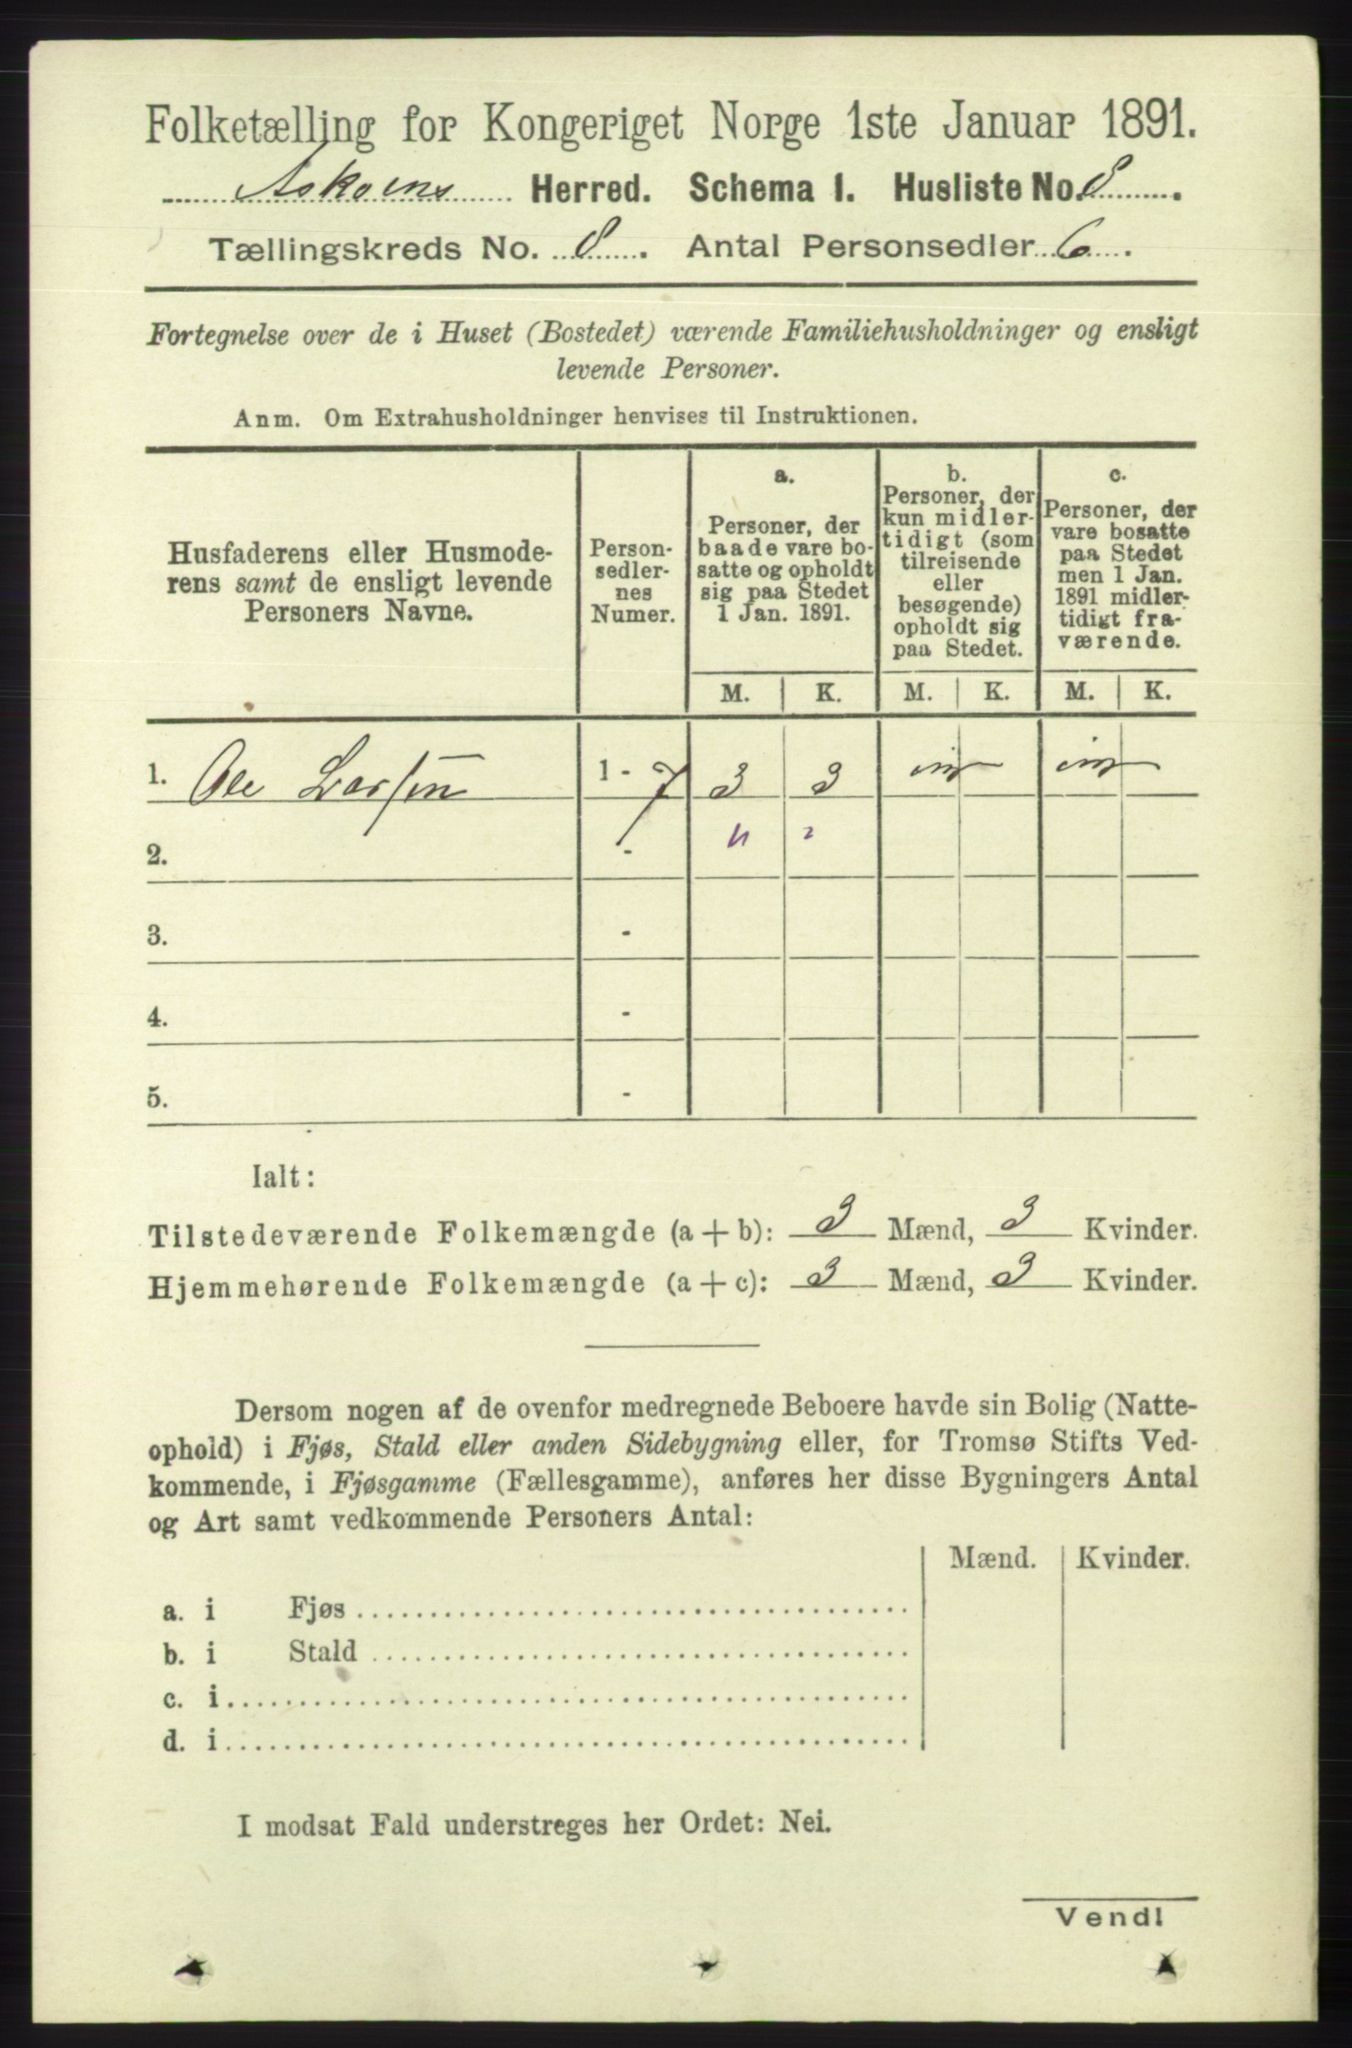 Folketælling for Kongeriget Norge 1ste Januar 1891.
Askøens Herred. Schema 1. Husliste No. 8.
Tællingskreds No. 8. Antal Personsedler 6.
Fortegnelse over de i Huset (Bostedet) værende Familiehusholdninger og ensligt
levende Personer.
Anm. Om Extrahusholdninger henvises til Instruktionen.
Husfaderens eller Husmode-
rens samt de ensligt levende
Personers Navne.
Person-
sedler-
nes
Numer.
a.
Personer, der
baade vare bo-
satte og opholdt
sig paa Stedet
1 Jan. 1891.
b.
Personer, der
kun midler-
tidigt (som
tilreisende
eller
besøgende)
opholdt sig
paa Stedet.
c.
Personer, der
vare bosatte
paa Stedet
men 1 Jan.
1891 midler-
tidigt fra-
værende.
M. K. M. K. M. K.
1. Ole Larsen 1 - 7 3 3
2. - 4 2
3. -
4. -
5. -
Ialt:
Tilstedeværende Folkemængde (a + b): 3 Mænd, 3 Kvinder.
Hjemmehørende Folkemængde (a + c): 3 Mænd, 3 Kvinder.
Dersom nogen af de ovenfor medregnede Beboere havde sin Bolig (Natte-
ophold) i Fjøs, Stald eller anden Sidebygning eller, for Tromsø Stifts Ved-
kommende, i Fjøsgamme (Fællesgamme), anføres her disse Bygningers Antal
og Art samt vedkommende Personers Antal:
Mænd. Kvinder.
a. i Fjøs
b. i Stald
c. i
d. i
I modsat Fald understreges her Ordet: Nei.
Vend!